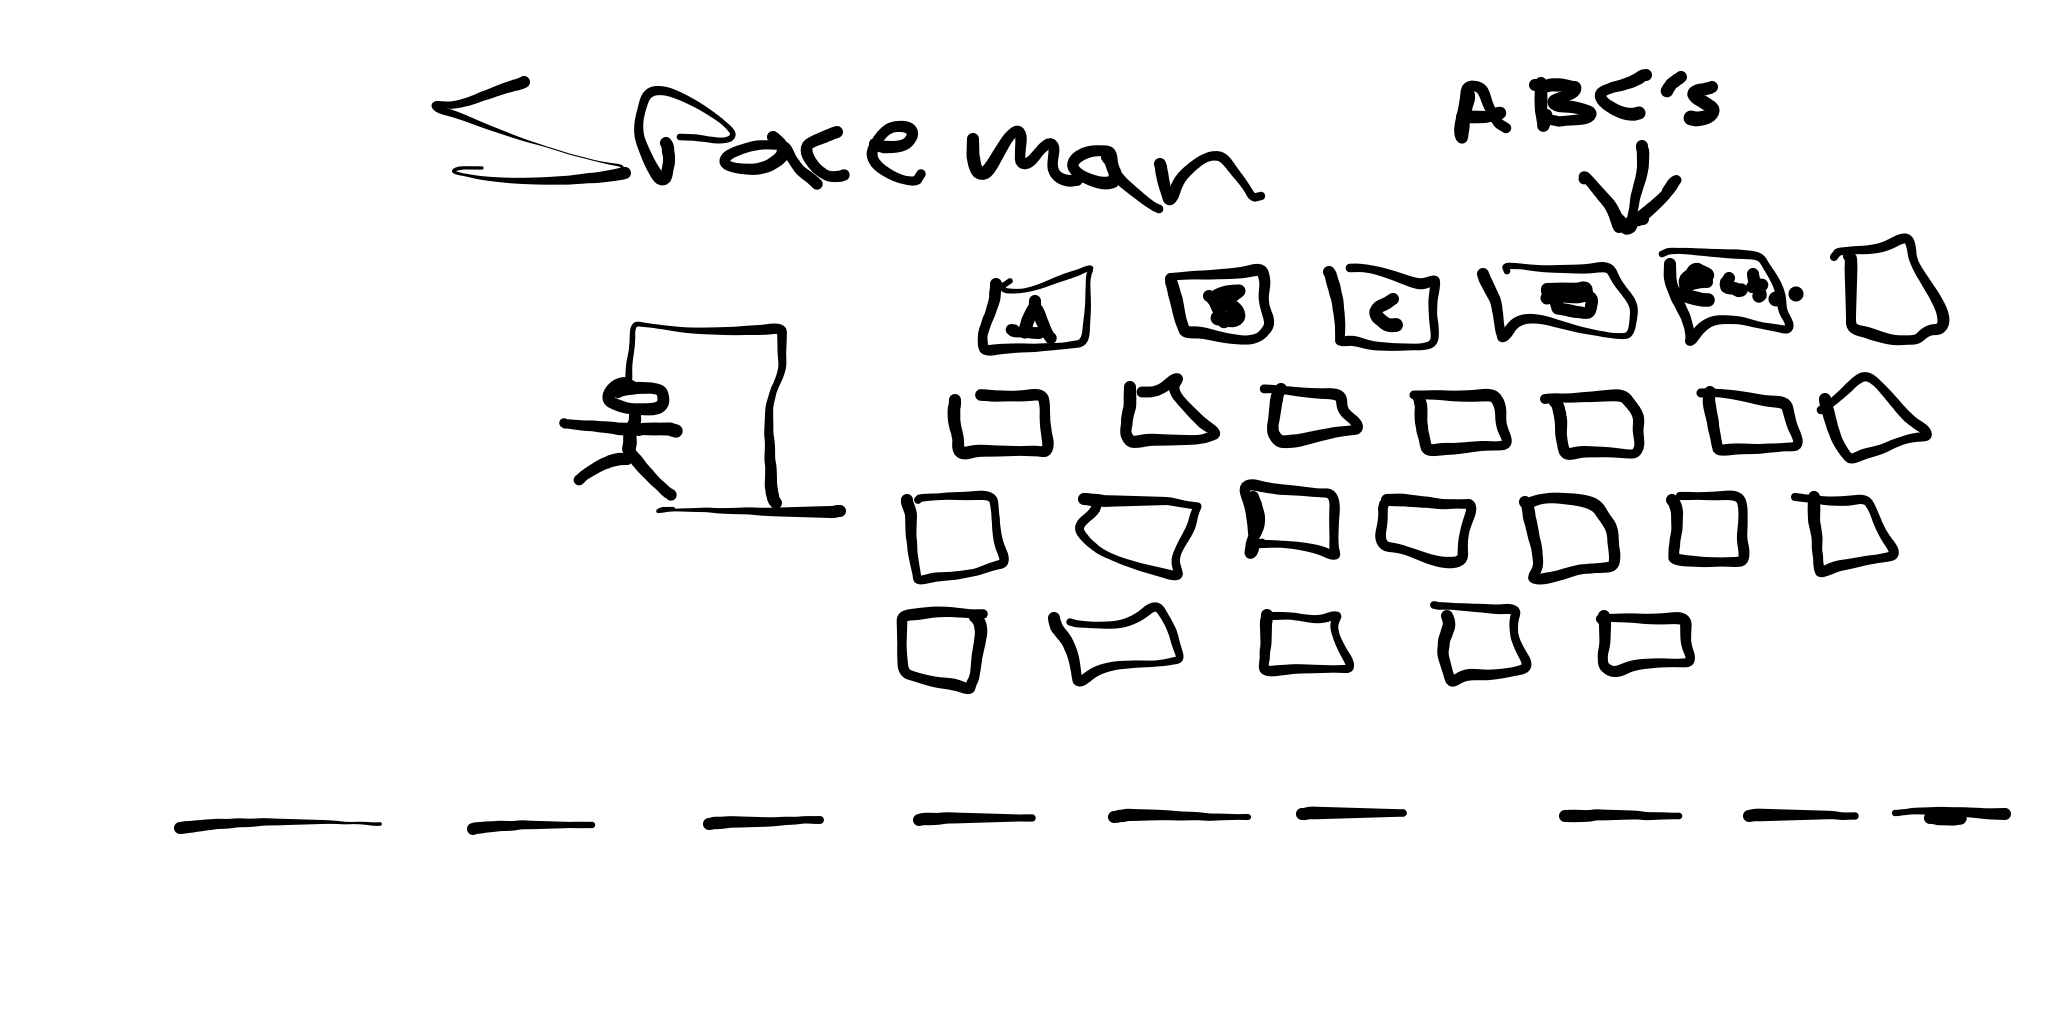 Spaceman
ABC's
A B C D Etc...